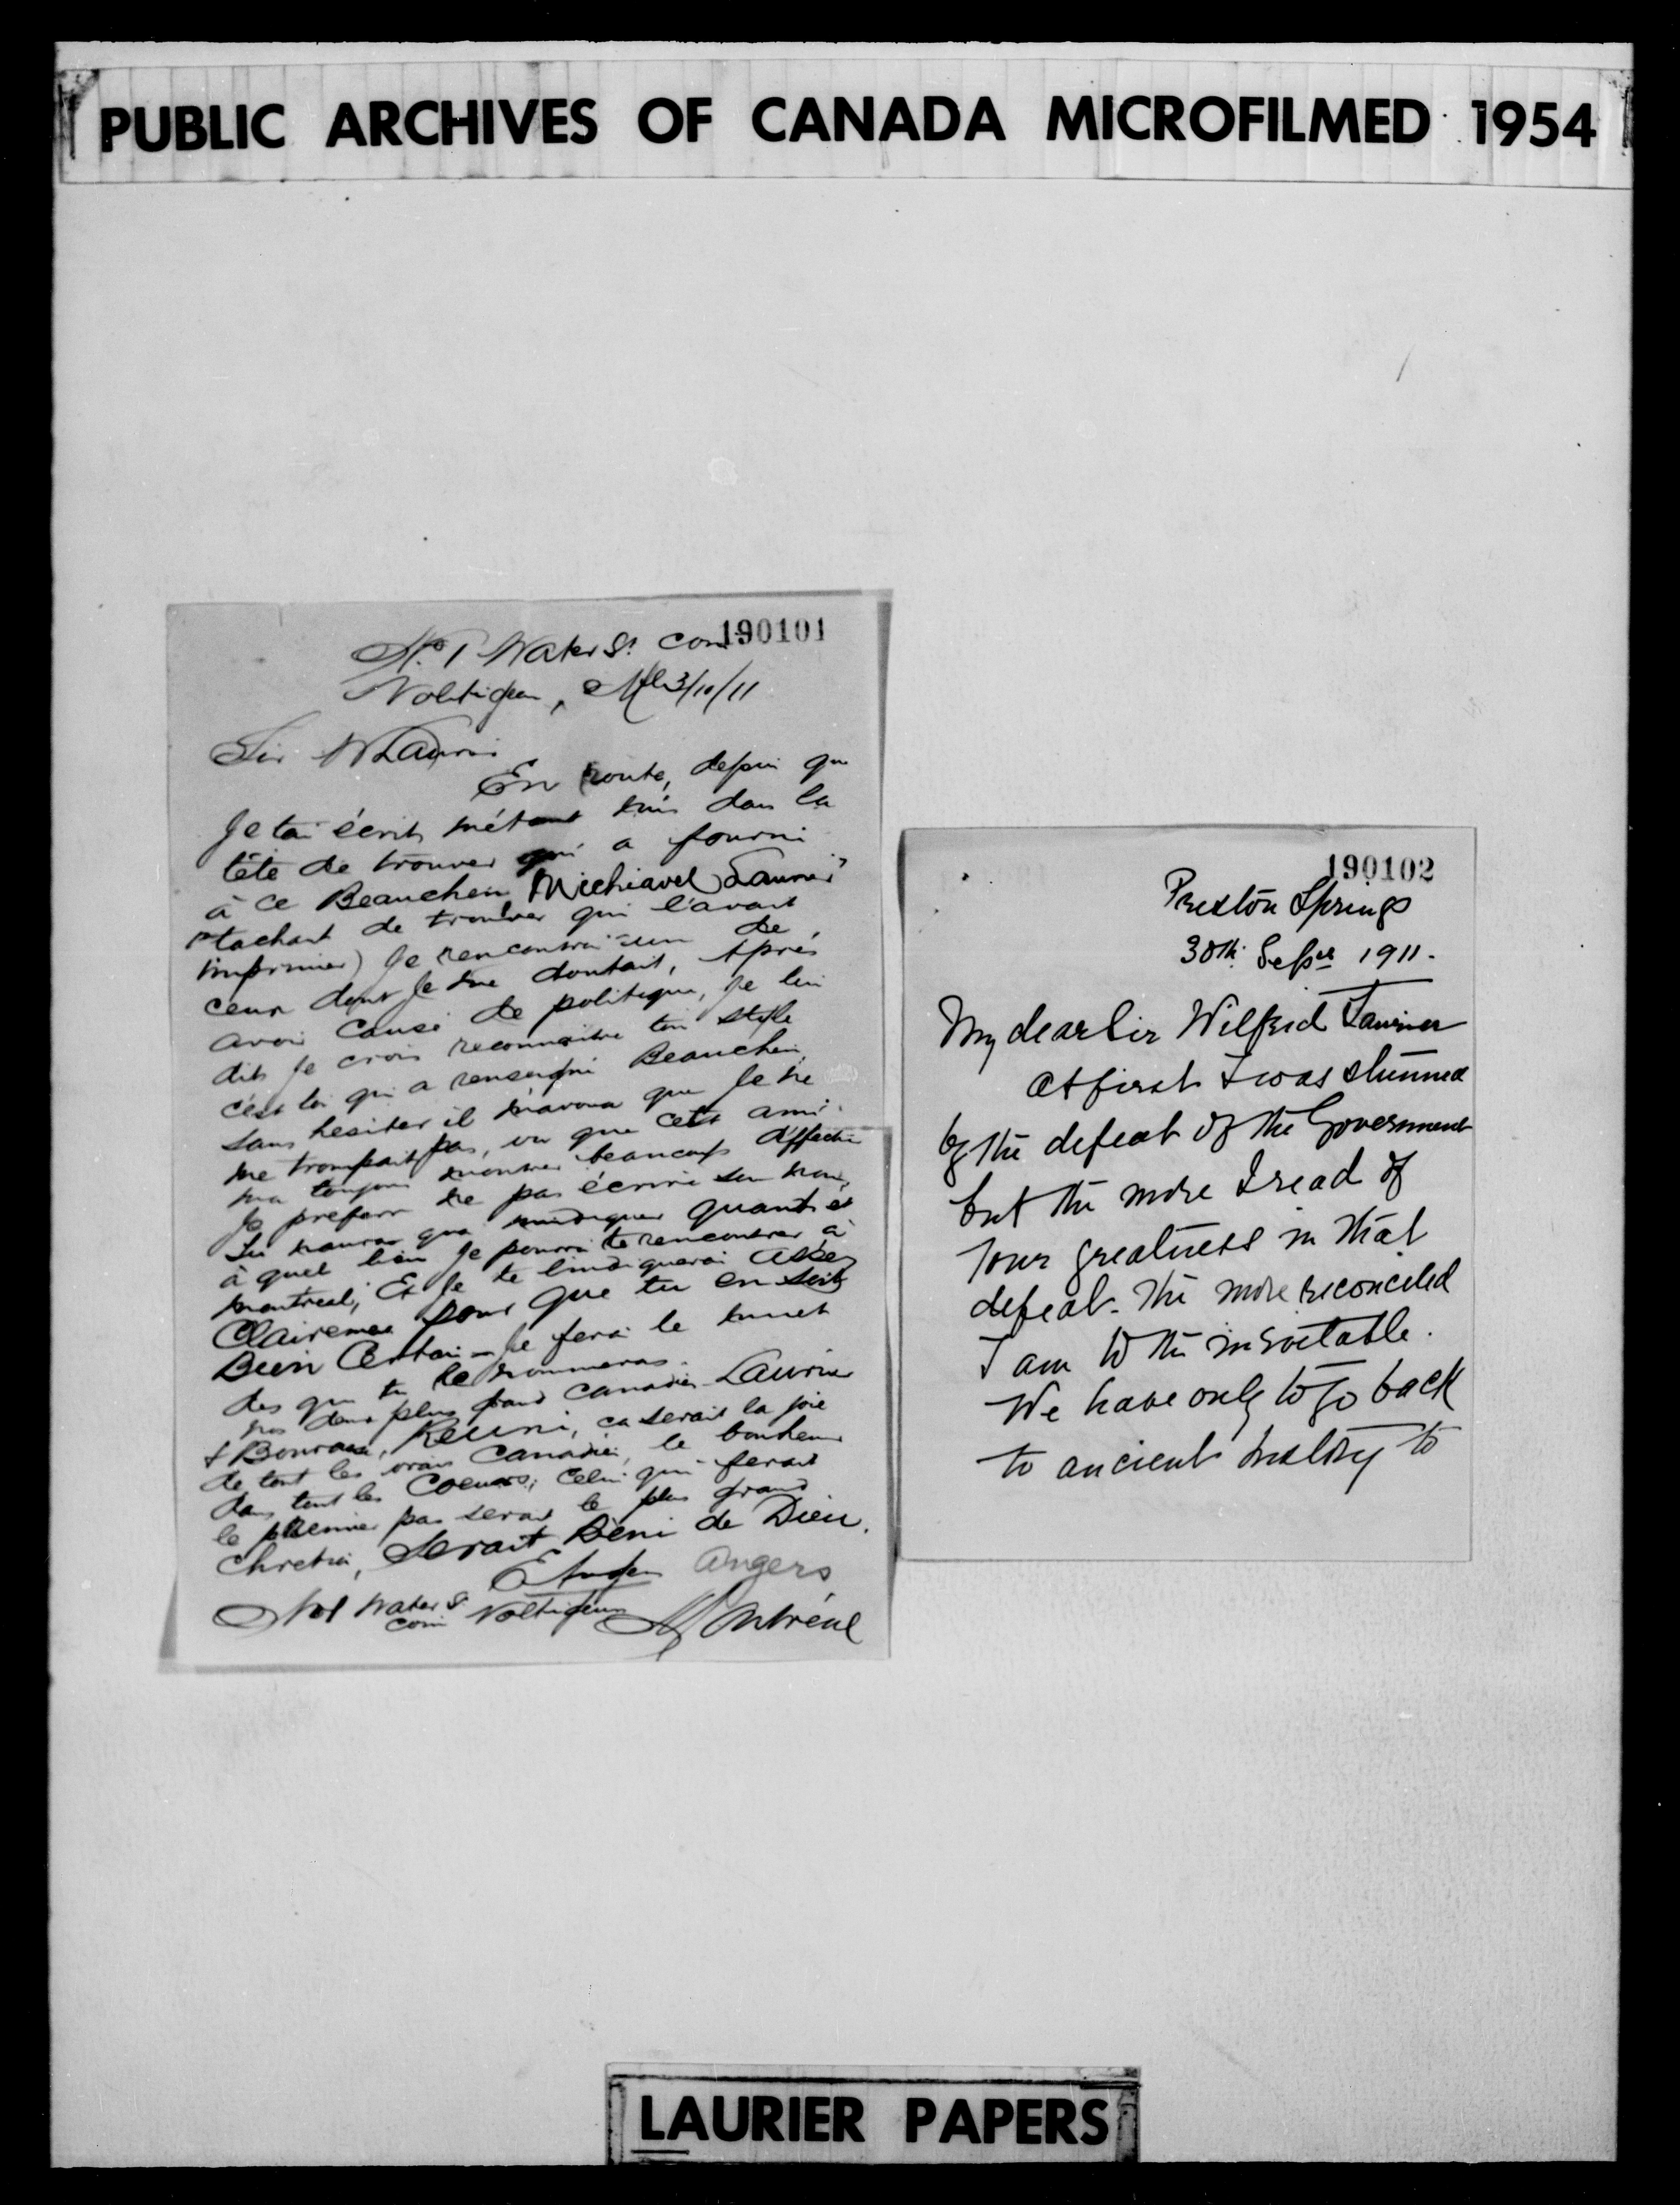 PUBLIC ARCHIVES OF CANADA MICROFILMED 1954
190101
No. 1 Water St. Coin
Voltigeur, Mtl 3/10/11
Sir W Laurier
En route, depui que
Je tai écrit métant mis dans la
tête de trouver qui a fourni
à ce Beauchem Michiavel Laurier"
tachant de trouver qui l'avait
imprimer) Je rencontrai un de
ceux dont Je me doutait, Après
avoir Causé de politique, Je lui
dit Je crois reconnaitre ton style
c'est toi qui a renseigné Beauchem,
sans hesiter il m'avoua que Je ne
me trompait pas, vu que cett ami
ma toujour montrer beaucoup d'affection
Je prefere ne pas écrire son nom,
Tu nauras qua mindiquer quand et
à quel lieu Je pourrai te rencontrer à
Montreal, Et Je te lindiquerai assez
Clairemen pour que tu en soit
Bien Certain – Je ferai le muet
des que tu le nommeras.
nos deux plus grand Canadien Laurier
& Bourassa, Reuni, ca serait la joie
de tout les vrais Canadien, le bonheur
dans tout les Coeurs; Celui qui ferait
le premier pas serait le plus grand
Chretien, Serait Béni de Dieu.
E Angers Angers
No 1 Water St.
coin Voltigeurs Montréal
190102
Preston Springs
30th. Sepr 1911.
My dear Sir Wilfrid Laurier
At first I was stunned
by the defeat of the Government
but the more I read of
your greatness in that
defeat. the more reconciled
I am to the inevitable.
We have only to go back
to ancient history to
LAURIER PAPERS